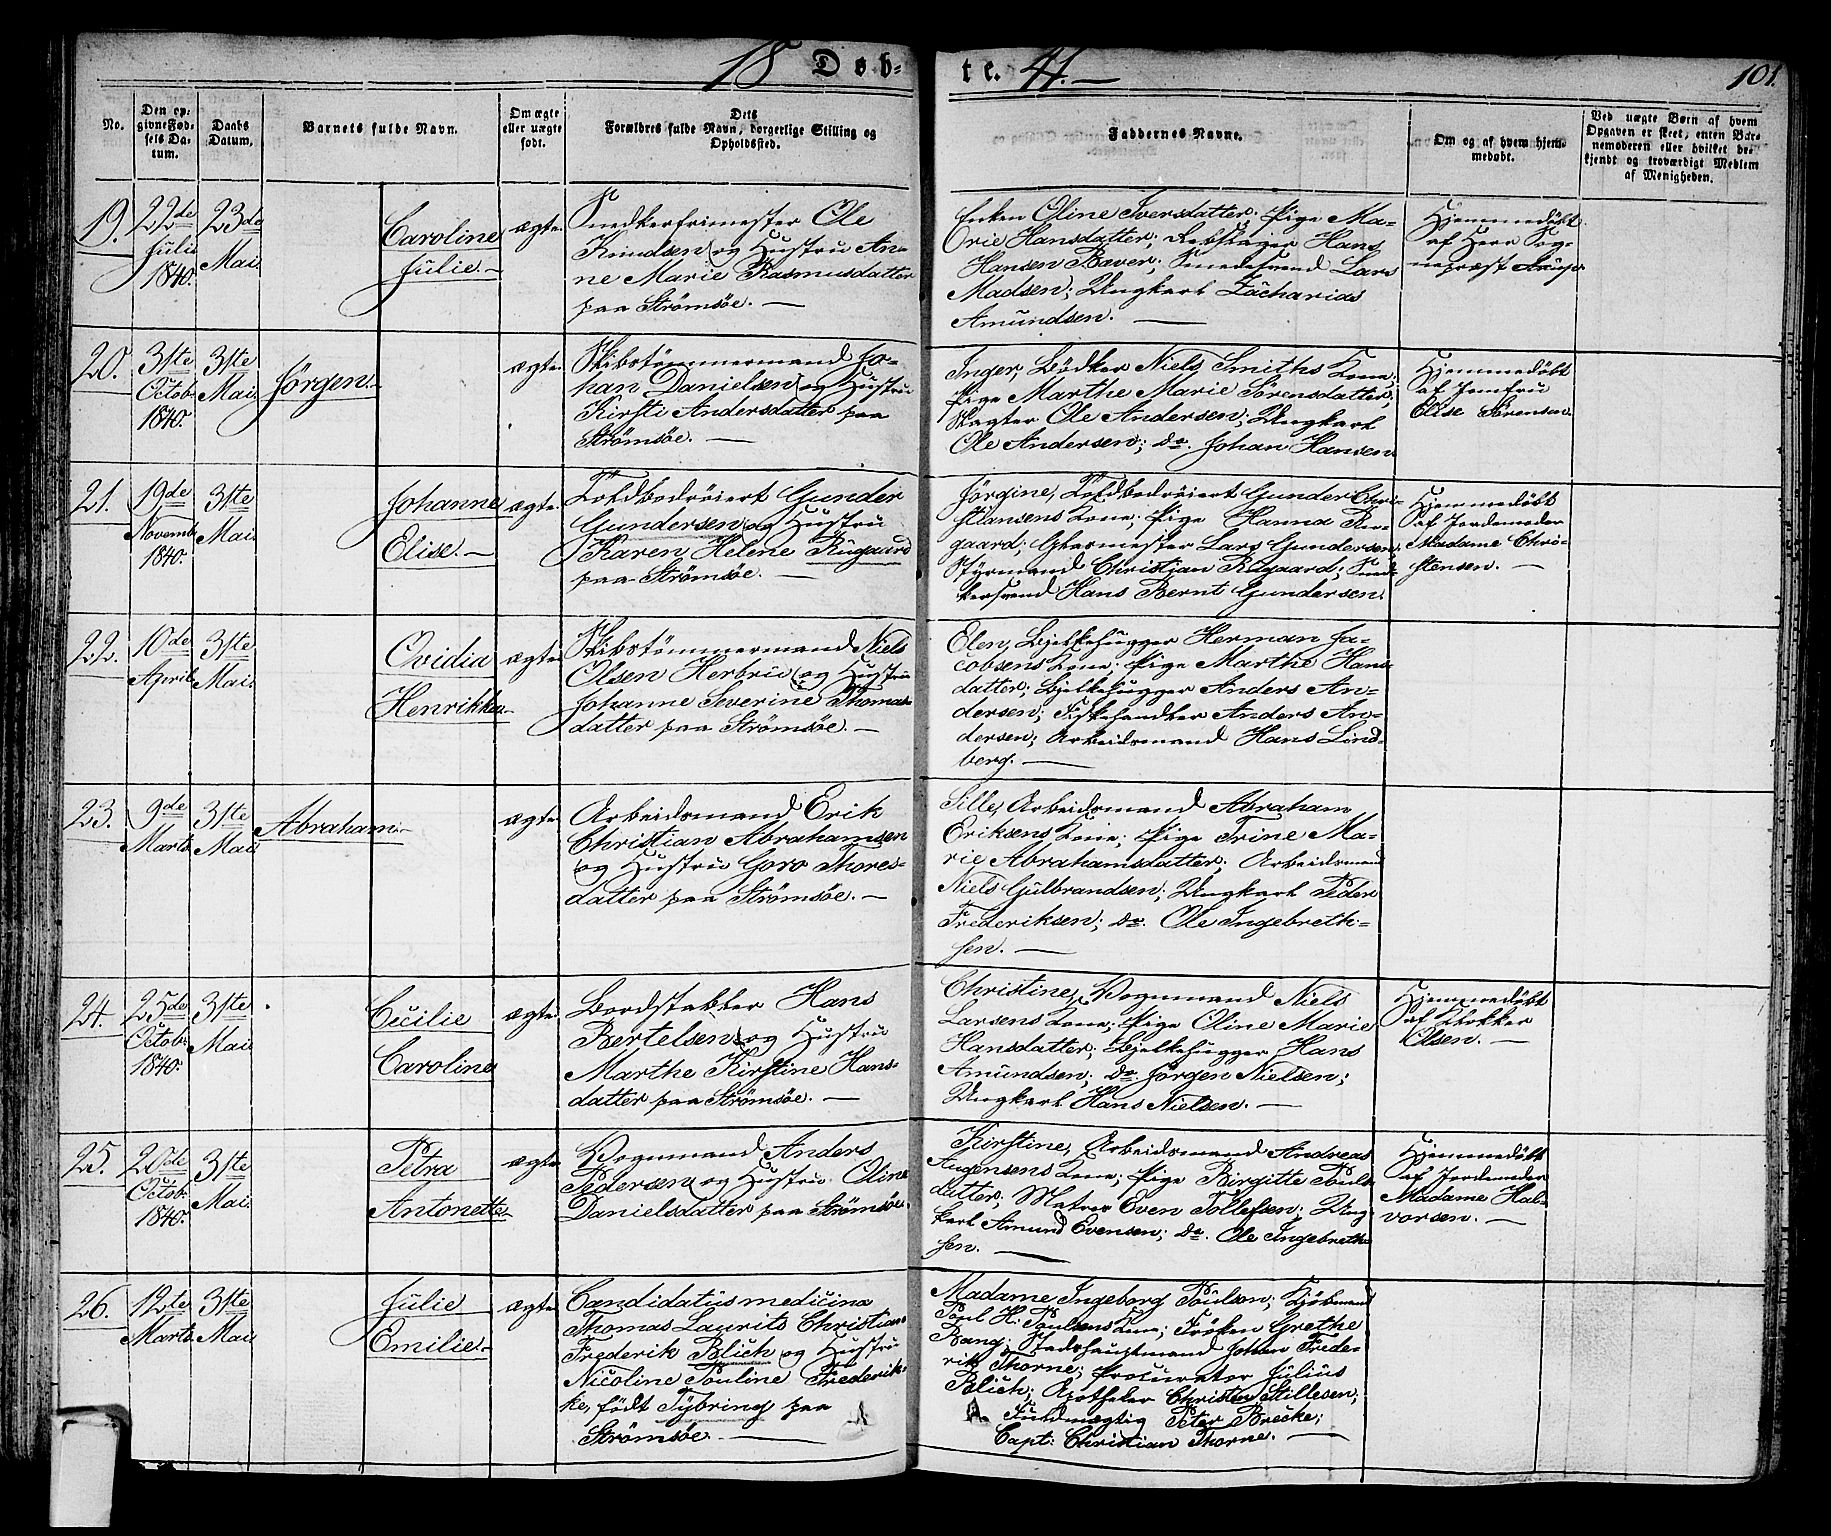 18 Døb-
te. 41.
101.
No.
Den op-
givne Fød-
sels Da-
tum.
Daabs
Datum.
Barnets fulde Navn.
Om ægte
eller uægte
født.
Dets
Forældres fulde Navn, borgerlige Stilling og
Opholdssted.
Faddernes Navne.
Om og af hvem hjem-
medøbt.
Ved uægte Børn af hvem
Opgaven er skeet, enten Bar-
nemoderen eller hvilket be-
kjendt og troværdigt Medlem
af Menigheden.
19.
22de
Julii
1840.
23de
Mai.
Caroline
Julie.
ægte.
Snedkerfrimester Ole
Knudsen og Hustru An-
ne Marie Rasmusdatter
paa Strømsøe.
Enken Oline Iversdatter; Pige Ma-
rie Hansdatter; Rebslager Hans
Hansen Baver; Smedesvend Lars
Madsen; Ungkarl Zacharias
Amundsen.
Hjemmedøbt
af Herr Sog-
nepræst
20.
31te
Octob.
1840.
31te
Mai.
Jørgen.
ægte.
Skibstømmermand Jo-
han Danielsen og Hustru
Kirsti Andersdatter paa
Strømsøe.
Inger, Bødker Niels Smiths Kone;
Pige Marthe Marie Sørensdatter;
Slagter Ole Andersen; Ungkarl
Ole Andersen; do. Johan Hansen.
Hjemmedøbt
af Jomfru
Elise Sørensen.
21.
19de
Novemb.
1840.
31te
Mai.
Johanne
Elise.
ægte.
Toldbedrøiert Gunder
Gundersen og Hustru
Karen Helene Rugaard
paa Strømsøe.
Jørgine, Toldbedrøiert Gunder Chri-
stiansens Kone; Pige Hanna Ru-
gaard; Glasmester Lars Gundersen;
Styrmand Christian Rugaard; Sned-
kersvend Hans Bernt Gundersen.
Hjemmedøbt
af Jordemoder
Madame Chri-
stensen.
22.
10de
April.
31te
Mai.
Ovidia
Henrikka.
ægte.
Skibstømmermand Niels
Olsen Herbru og Hustru
Johanne Severine Thomas-
datter paa Strømsøe.
Elen, Bjelkehugger Herman Ja-
cobsens Kone; Pige Marthe Hans-
datter; Bjelkehugger Anders An-
dersen; Fiskehandler Anders An-
dersen; Arbeidsmand Hans Lind-
berg.
23.
9de
Marts.
31te
Mai.
Abraham.
ægte.
Arbeidsmand Erik
Christian Abrahamsen
og Hustru Goro Thores-
datter paa Strømsøe.
Sille, Arbeidsmand Abraham
Eriksens Kone; Pige Trine Ma-
rie Abrahamsdatter; Arbeidsmand
Niels Gulbrandsen; Ungkarl Peder
Frederiksen; do. Ole Ingebreth-
sen.
24.
25de
Octob.
1840.
31te
Mai.
Cecilie
Caroline
ægte.
Bordstabler Hans
Bertelsen og Hustru
Marthe Kirstine Hans-
datter paa Strømsøe.
Christine, Vognmand Niels
Larsens Kone; Pige Oline Marie
Hansdatter; Bjelkehugger Hans
Amundsen; do. Jørgen Nielsen;
Ungkarl Hans Nielsen.
Hjemmedøbt
af Klokker
Olsen.
25.
20de
Octob.
1840.
31te
Mai.
Petra
Antonette
ægte.
Vognmand Anders
Pedersen og Hustru Oline
Danielsdatter paa Strømsøe.
Kirstine, Arbeidsmand Andreas
Augensens Kone; Pige Birgitte Pouls-
datter; Matros Even Tollefsen; Ung-
karl Amund Evensen; do. Ole Ingebreth-
sen.
Hjemmedøbt
af Jordemoder
Madame Hal-
vorsen.
26.
12te
Marts.
31te
Mai.
Julie
Emilie.
ægte.
Candidatus medicina
Thomas Laurits Christian
Frederik Blich og Hustru
Nicoline Pouline Frederik-
ke, født Tybring paa
Strømsøe.
Madame Ingeborg Poulsen; Kjøbmand
Poul H. Poulsens Kone; Frøken Grethe
Bang; Stadshauptmand Johan Frede-
rik Thorne; Procurator Julius
Blich; Apotheker Christen Stillesen;
Fuldmægtig Peter Brecke;
Capt: Christian Thorne.